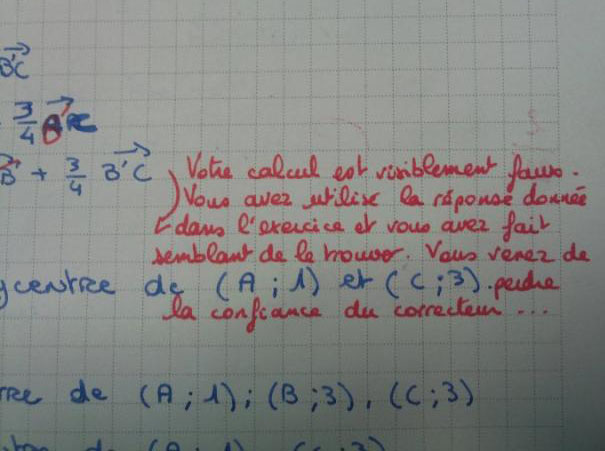 B'C
3/4
B' + 3/4 B'C Votre calcul est visiblement faux.
Vous avez utilisé la réponse donnée
dans l'exercice et vous avez fait
semblant de la trouver. Vous venez de
ycentre de (A ; 1) et (C ; 3). perdre
la confiance du correcteur ...
tre de (A ; 1) ; (B ; 3), (C ; 3)